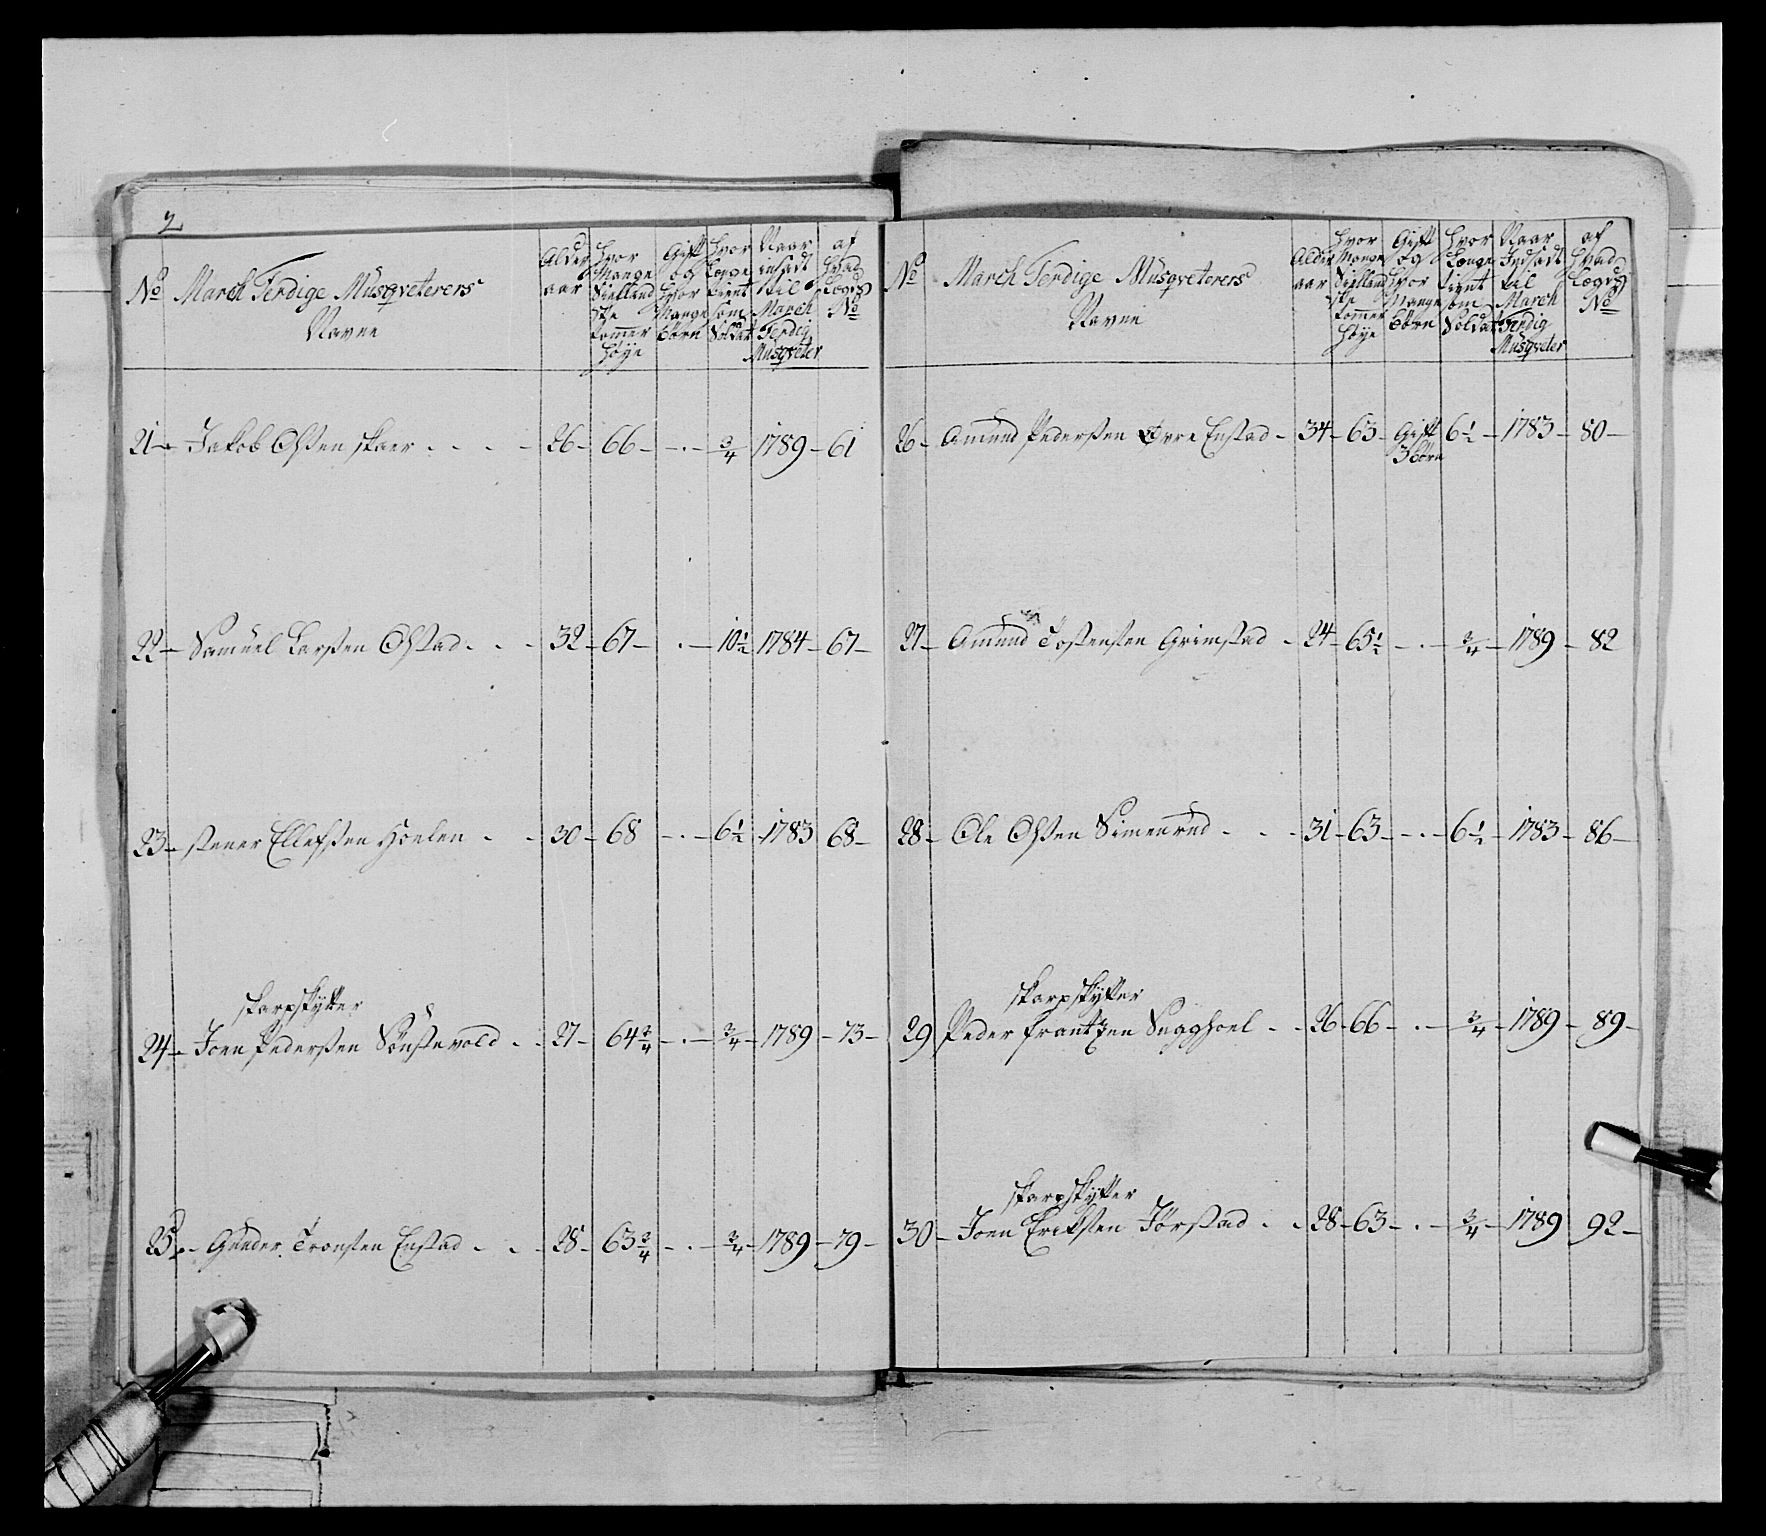 2
No March Ferdige Musqveterers Navne | Alder aar | Hvor Mange Siellandske tommer Høye | Gift og Hvor Mange børn | Hvor Længe tient som Soldat | Naar indsadt til March Ferdig Musqveter | af hvad Lægds No
21 - Jakob Olssen skaer - 26 - 66 - - 3/4 1789 - 61
22 - Samuel Larssen Olstad - 32 - 67 - - 10 1/2 1784 - 67 -
23 - stener Ellefssen Hoelen - 30 - 68 - - 6 1/2 - 1783 68 -
skarpskytter
24 - Joen Pederssen Sønstevold - 27 - 64 3/4 - - 3/4 - 1789 - 73 -
25 - Gunder Tronsten Enstad - 28 - 63 3/4 - - 3/4 - 1789 - 79 -
No March Ferdige Musqveterers Navne | Alder aar | Hvor Mange Siellandske tommer Høye | Gift og Hvor Mange børn | Hvor Længe tient som Soldat | Naar Indsadt til March Ferdig Musqveter | af Hvad Lægds No
26 - Amund Pederssen Øvre Enstad - 34 - 63 - Gift 3 børn 6 1/2 - 1783 - 80 -
27 - Amund Tostensten Grimstad - 24 - 65 1/2 - - 3/4 - 1789 - 82
28 - Ole Olssen Simenrud - 31 - 63 - - 6 1/2 - 1783 - 86 -
skarpskytter
29 Peder frantzen - 26 - 66 - - 3/4 - 1789 - 89 -
skarpskytter
30 - Joen Eriksten Jørstad - 28 - 63 - - 3/4 - 1789 92 -